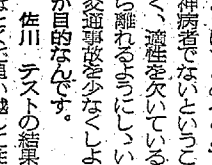 神病者でないというこ
く、適性を欠いている
ら離れるようにし、い
交通事故を少なくしよ
が目的なんです。
佐川 テストの結果